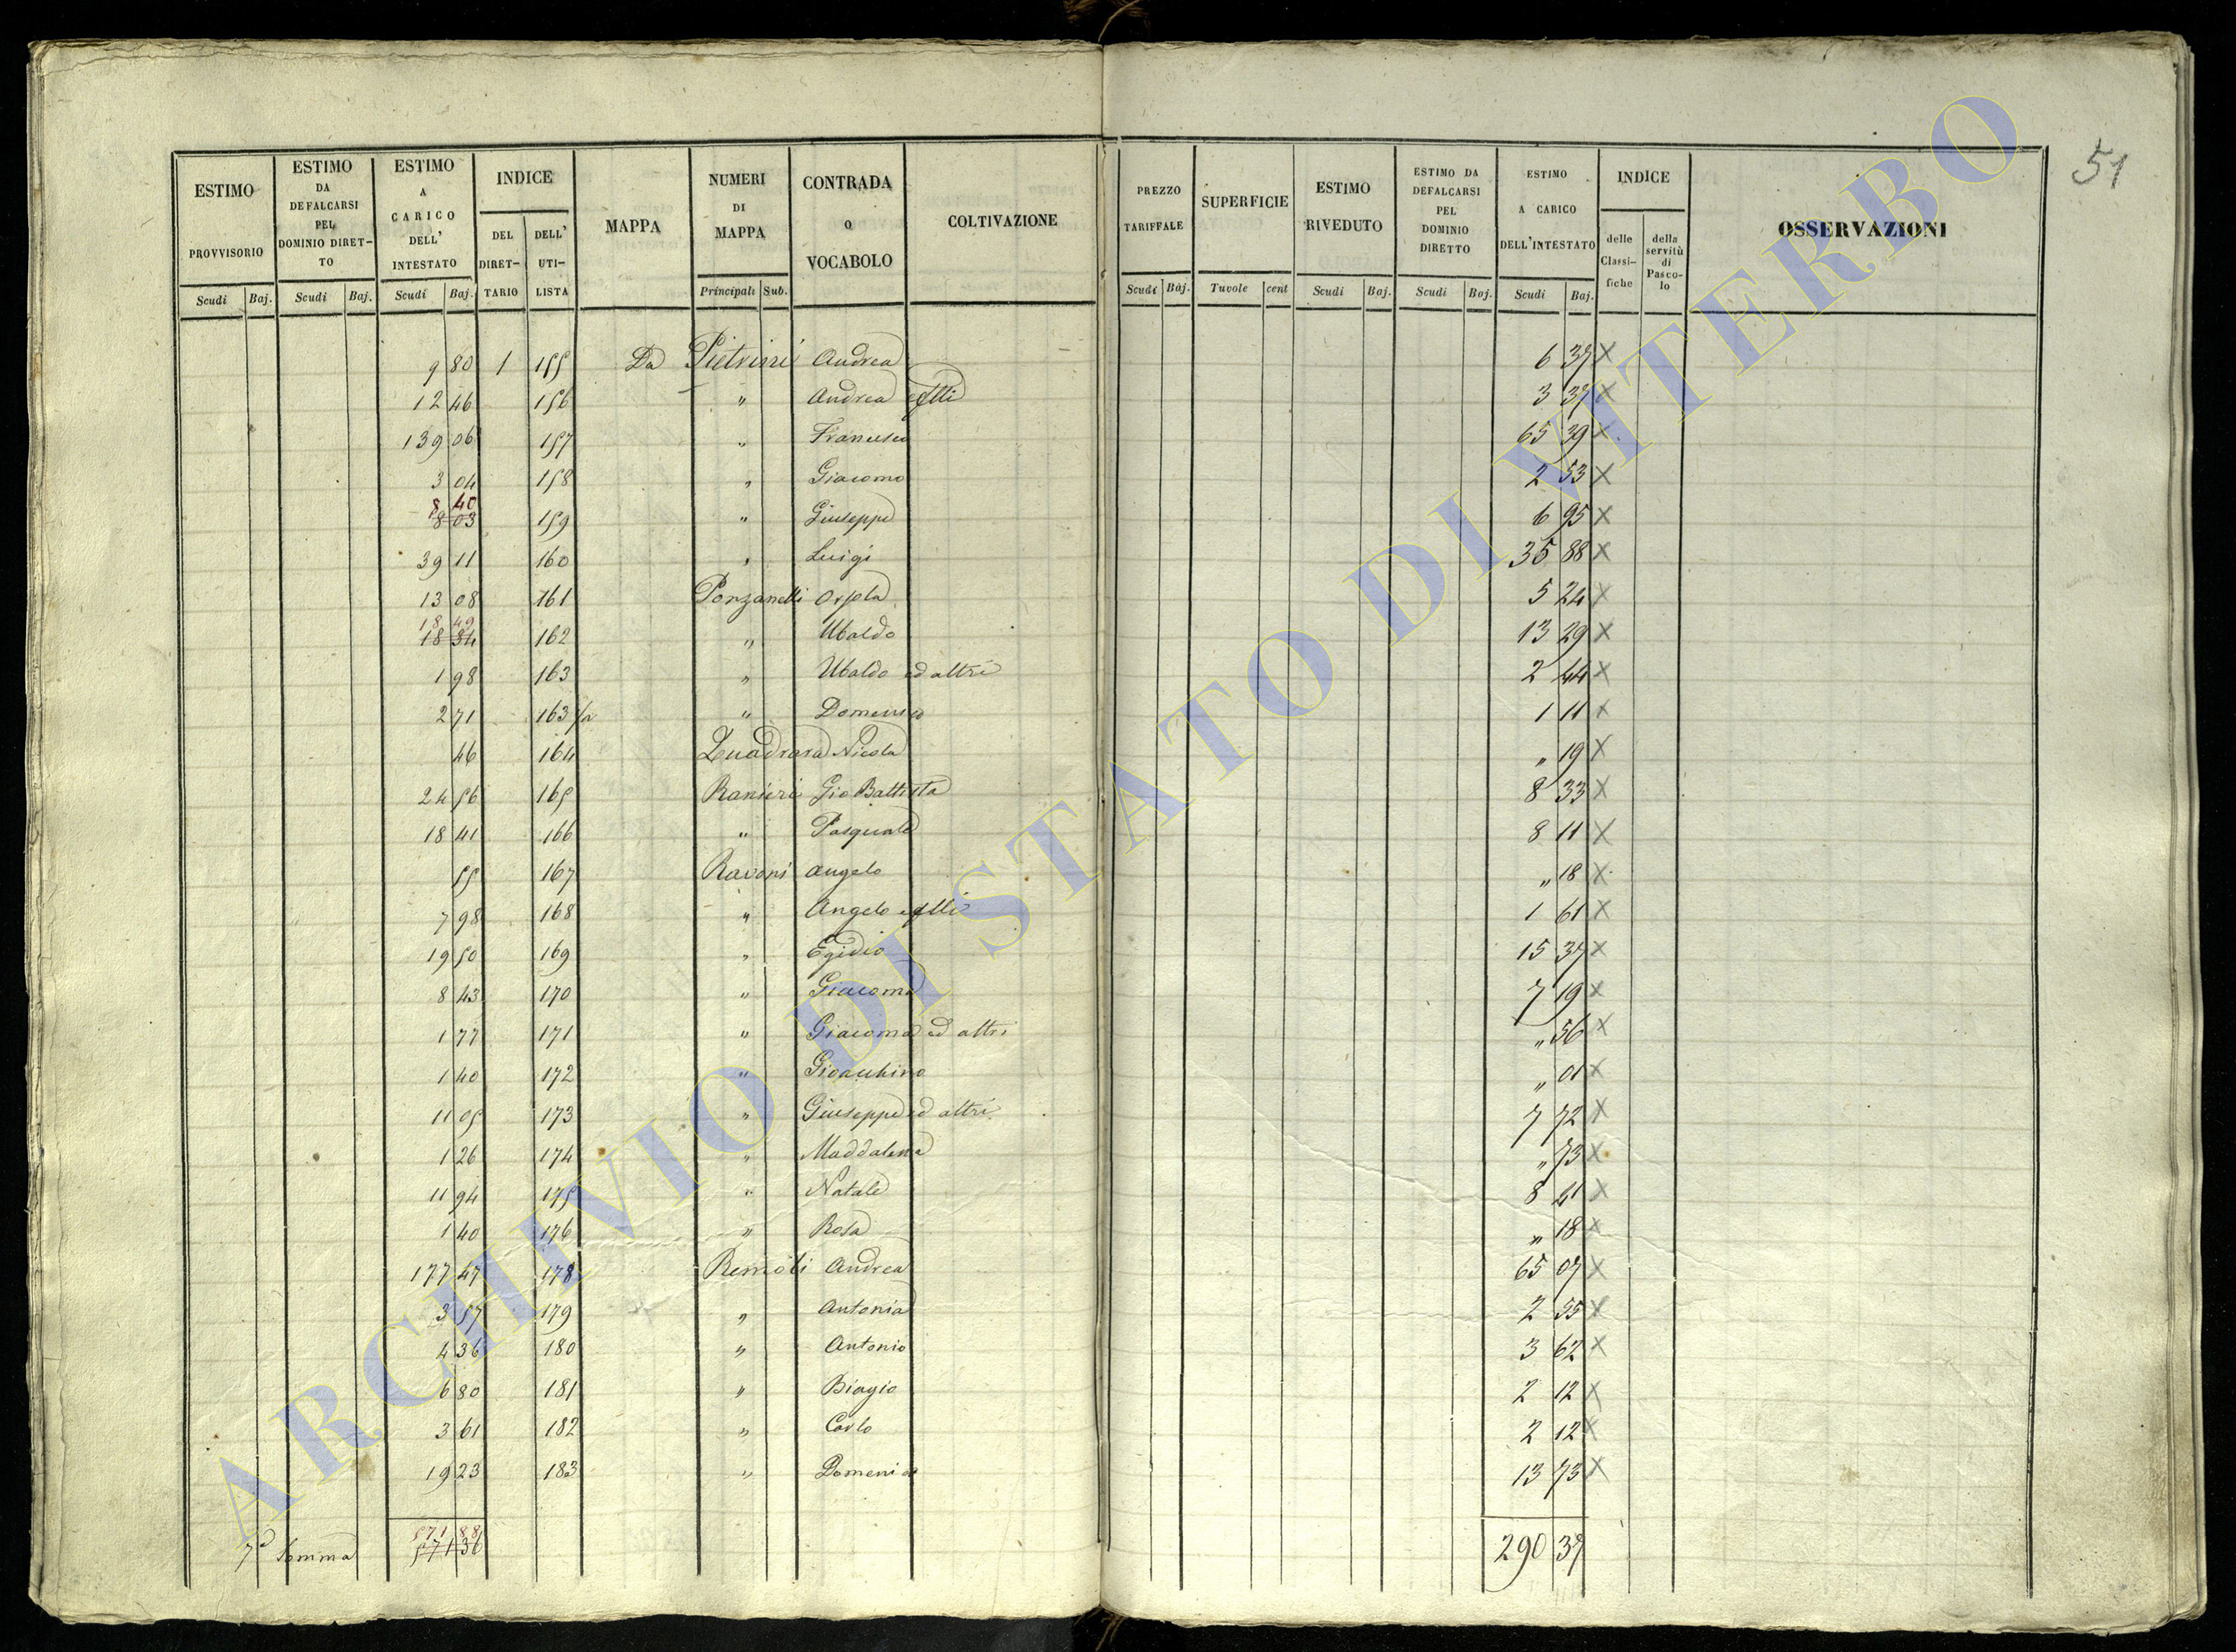 51
ESTIMO PROVVISORIO
ESTIMO DA DEFALCARSI PEL DOMINIO DIRET-TO
ESTIMO A CARICO DELL' INTESTATO
INDICE
DEL DIRET-TARIO
DELL' UTI-LISTA
MAPPA
NUMERI DI MAPPA
CONTRADA O VOCABOLO
COLTIVAZIONE
PREZZO TARIFFALE
SUPERFICIE
ESTIMO RIVEDUTO
ESTIMO DA DEFALCARSI PEL DOMINIO DIRETTO
ESTIMO A CARICO DELL'INTESTATO
INDICE
delle Classi-fiche
della servitù di Pasco-lo
OSSERVAZIONI
Scudi Baj. Scudi Baj. Scudi Baj. Principali Sub. Scudi Baj. Tavole cent Scudi Baj. Scudi Baj. Scudi Baj.
9 80 1 155 Da Pietrini Andrea 6 37 X
12 46 156 " Andrea e flli 3 37 X
139 06 157 " Francesco 65 39 X
3 04 158 " Giacomo 2 53 X
8 40
8 03 159 " Giuseppe 6 95 X
39 11 160 " Luigi 35 88 X
13 08 161 Ponzanelli Orsola 5 24 X
18 49
18 34 162 " Ubaldo 13 29 X
1 98 163 " Ubaldo ed altri 2 44 X
2 71 163 " Domenico 1 11 X
46 164 Quadrara Nicola " 19 X
24 56 165 Ranieri Gio Battista 8 33 X
18 41 166 " Pasquale 8 11 X
55 167 Ravoni Angelo " 18 X
7 98 168 " Angelo e flli 1 61 X
19 50 169 " Egidio 15 37 X
8 43 170 " Giacomo 7 19 X
1 77 171 " Giacomo ed altri " 56 X
1 40 172 " Gioacchino " 01 X
11 05 173 " Giuseppe ed altri 7 72 X
1 26 174 " Maddalena " 73 X
11 94 175 " Natale 8 41 X
1 40 176 " Rosa " 18 X
177 47 178 Remoli Andrea 65 07 X
3 57 179 " Antonia 2 55 X
4 36 180 " Antonio 3 62 X
6 80 181 " Biagio 2 12 X
3 61 182 " Carlo 2 12 X
19 23 183 " Domenico 13 73 X
571 88
7ª Somma 571 36 290 37
ARCHIVIO DI STATO DI VITERBO